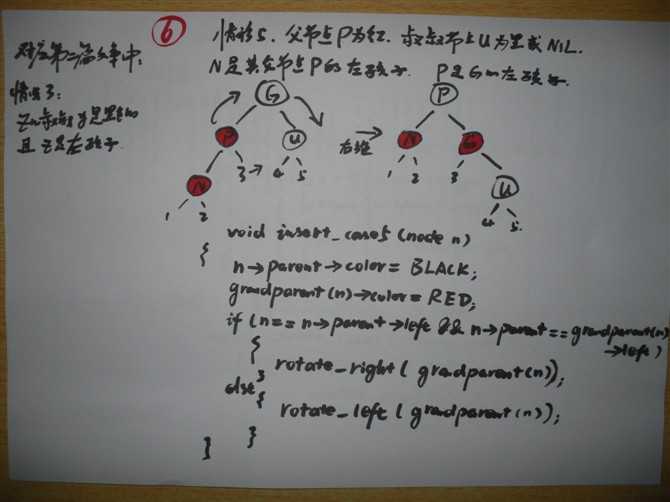 ⑥
情形5、父节点P为红、叔叔节点U为黑或NIL.
N是其父节点P的左孩子. P是G的左孩子.
对应第二篇文章中:
情况3:
z的叔叔y是黑色的
且z是左孩子.
G
P
U
N
3
4
5
1
2
右旋
P
N
G
1
2
3
U
4
5
void insert_case5(node n)
{
n→parent→color = BLACK;
grandparent(n)→color = RED;
if (n == n→parent→left && n→parent == grandparent(n)
→left)
{
rotate_right( grandparent(n));
}
else
{
rotate_left( grandparent(n));
}
}